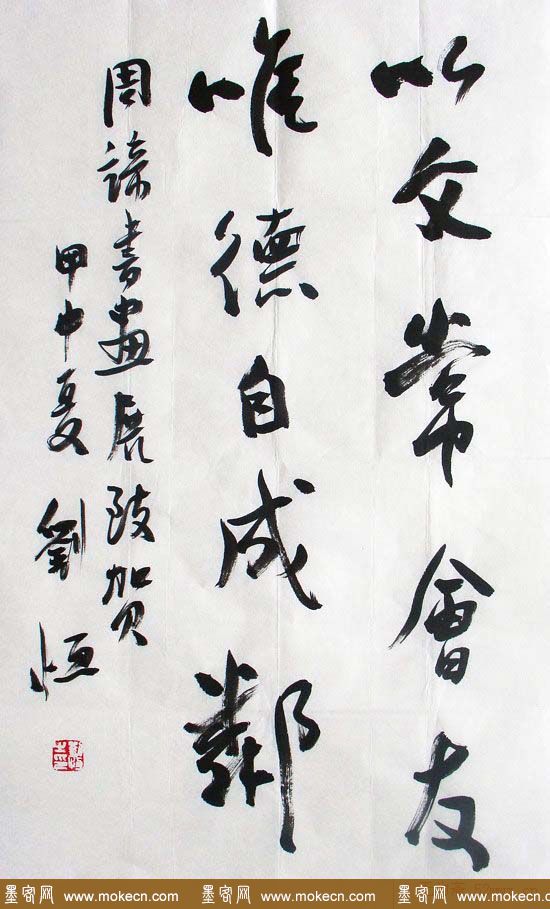 以文常會友
唯德自成鄰
周諦書畫展致賀
甲申夏 劉恒
墨客网 www.mokecn.com 墨客网 www.mokecn.com 墨客网 www.mokecn.com